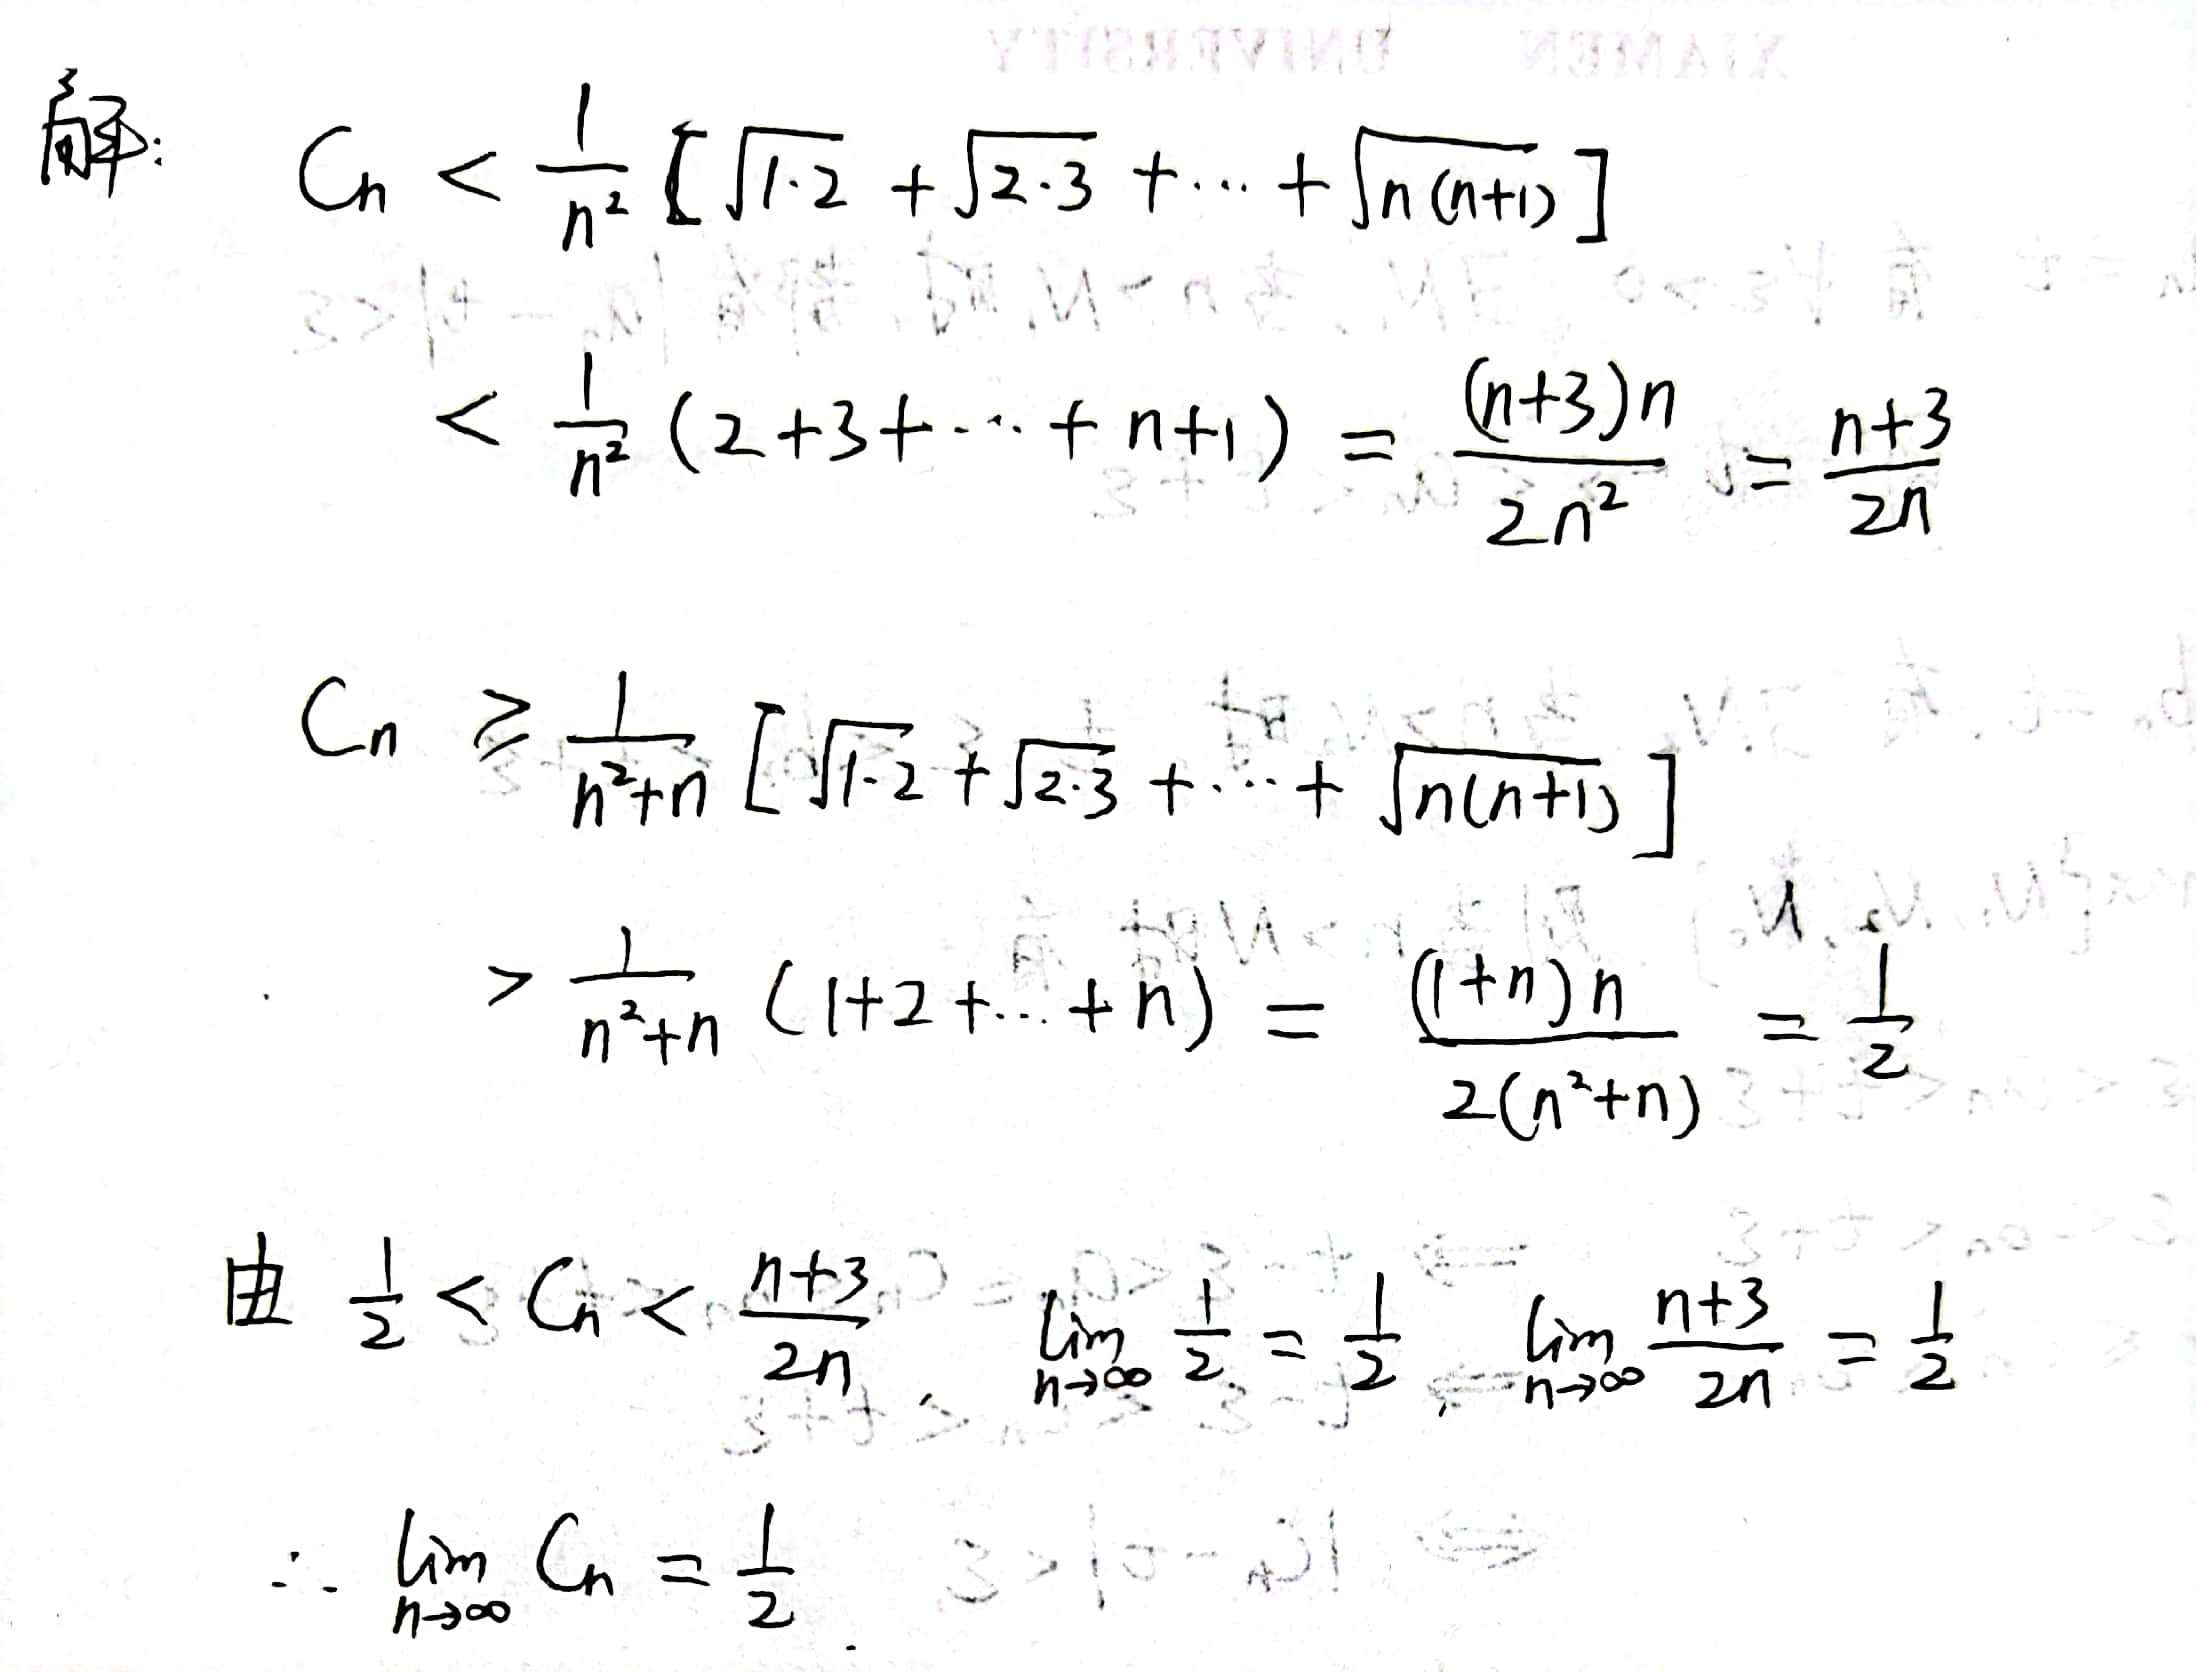 解: Cₙ < 1/n² [√(1·2) + √(2·3) + ··· + √(n(n+1))]
< 1/n² (2+3+···+n+1) = (n+3)n/2n² = n+3/2n
Cₙ ≥ 1/(n²+n) [√(1·2) + √(2·3) + ··· + √(n(n+1))]
> 1/(n²+n) (1+2+···+n) = (1+n)n/2(n²+n) = 1/2
由 1/2 < Cₙ < n+3/2n , lim n→∞ 1/2 = 1/2 , lim n→∞ n+3/2n = 1/2
∴ lim n→∞ Cₙ = 1/2 .